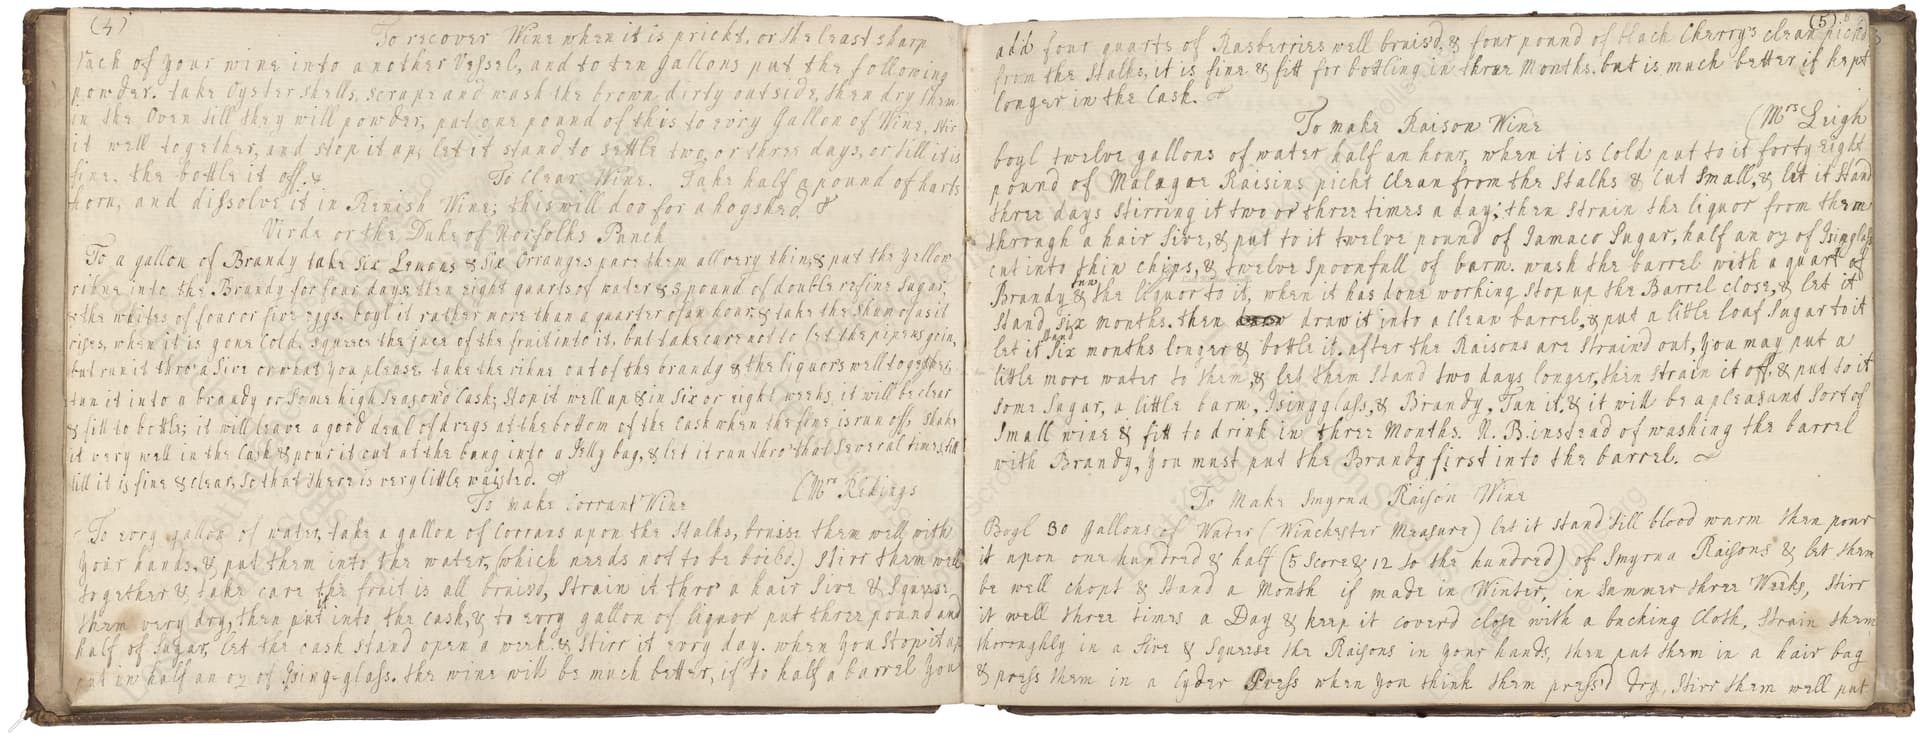 (4)
To recover Wine when it is prickt, or the least sharp
rack of your wine into another Vessel, and to ten gallons put the following
powder. take Oyster shells, scrape and wash the brown dirty outside, then dry them
in the Oven till they will powder, put one pound of this to evry Gallon of Wine, stir
it well together, and stop it up, let it stand to settle two, or three days, or till it is
fine. the bottle it off.
To Clear Wine. Take half a pound of harts
horn, and dissolve it in Renish Wine; this will doo for a hogshed.
Virde or the Duke of Norfolks Punch
To a gallon of Brandy take six Lemons & six Orranges pare them all very thin, & put the yellow
rihne into the Brandy for four days then eight quarts of water & 3 pound of double refine Sugar,
& the whites of four or five eggs. boyl it rather more than a quarter of an hour, & take the skum of as it
rises, when it is gone Cold, squeese the juce of the fruit into it, but take care not to let the pipens go in,
but run it thro a Sive or what you please. take the rihne out of the brandy & the liquors well together,
tun it into a brandy or Some high Season'd Cask; Stop it well up & in Six or eight weeks, it will be clear
& fitt to bottle; it will leave a good deal of dregs at the bottom of the Cask when the fine is run off, shake
it very well in the Cask & pour it out at the bung into a Jelly bag, & let it run thro that several times, till
till it is fine & clear, so that there is very little waisted.
To make Corrant Wine (Mrs Rekings
To evry gallon of water, take a gallon of Corrans upon the Stalks, bruise them well with
your hands, & put them into the water, (which needs not to be boild.) Stirr them well
together & take care the fruit is all bruisd, Strain it thro a hair Sive & Squeese
them very dry, then put into the cask, & to evry gallon of liquor put three pound and
half of Sugar, let the cask stand open a week & Stirr it evry day. when you Stop it up
put in half an oz of Ising-glass. the wine will be much better, if to half a barrel you
(5)
add four quarts of Rasberries well bruisd, & four pound of black Cherry's clean pickd
from the Stalks, it is fine & fitt for bottling in three Months. but is much better if kept
longer in the Cask.
To make Raison Wine (Mrs Leigh
boyl twelve gallons of water half an hour, when it is Cold put to it forty eight
pound of Malagoe Raisins pickt Clean from the Stalks & Cut Small, & let it Stand
three days stirring it two or three times a day; then Strain the liquor from them
through a hair Sive, & put to it twelve pound of Jamaco Sugar, half an oz of Isinglass
cut into thin Chips, & twelve Spoonfull of barm. wash the barrel with a quart of
Brandy & tunn the liquor to it, when it has done working Stop up the Barrel close, & let it
Stand six months. then draw it into a Clean barrel, & put a little loaf Sugar to it
let it stand Six months longer & bottle it. after the Raisons are Straind out, you may put a
little more water to them, & let them Stand two days longer, then strain it off, & put to it
some Sugar, a little barm, Isingglass, & Brandy, Tun it, & it will be a pleasant Sort of
Small wine & fitt to drink in three Months. N. B. instead of washing the barrel
with Brandy, you must put the Brandy first into the barrel.
To Make Smyrna Raison Wine
Boyl 30 Gallons of Water (Winchester Measure) let it stand till blood warm then pour
it upon one hundred & half (5 Score & 12 to the hundred) of Smyrna Raisons & let them
be well chopt & Stand a Month if made in Winter, in Summer three Weeks, Stirr
it well three times a Day & keep it coverd close with a bucking Cloth, Strain them
thoroughly in a Sive & Squeese the Raisons in your hands, then put them in a hair bag
& press them in a Cyder Press when you think them press'd dry, Stirr them well put